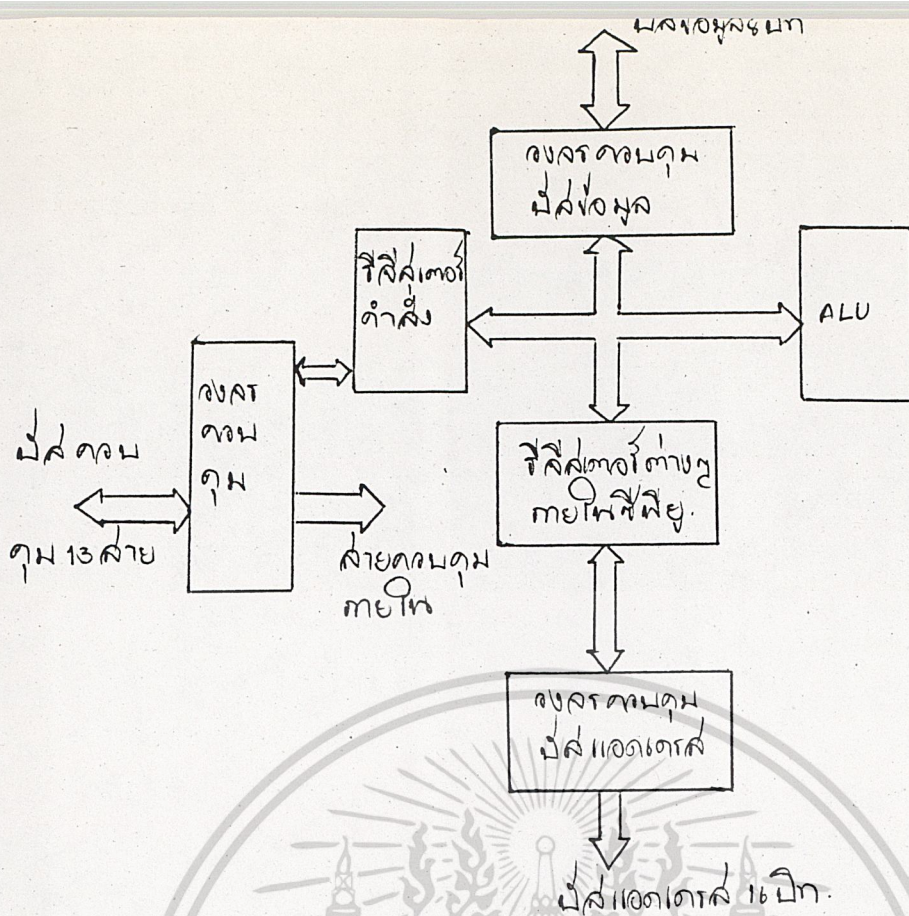 บัสข้อมูล 8 บิท
วงจรควบคุม
บัสข้อมูล
รีจีสเตอร์
คำสั่ง
ALU
วงจร
ควบ
คุม
บัสควบ
คุม 13 สาย
สายควบคุม
ภายใน
รีจีสเตอร์ต่างๆ
ภายในซีพียู.
วงจรควบคุม
บัสแอดเดรส
บัสแอดเดรส 16 บิท.